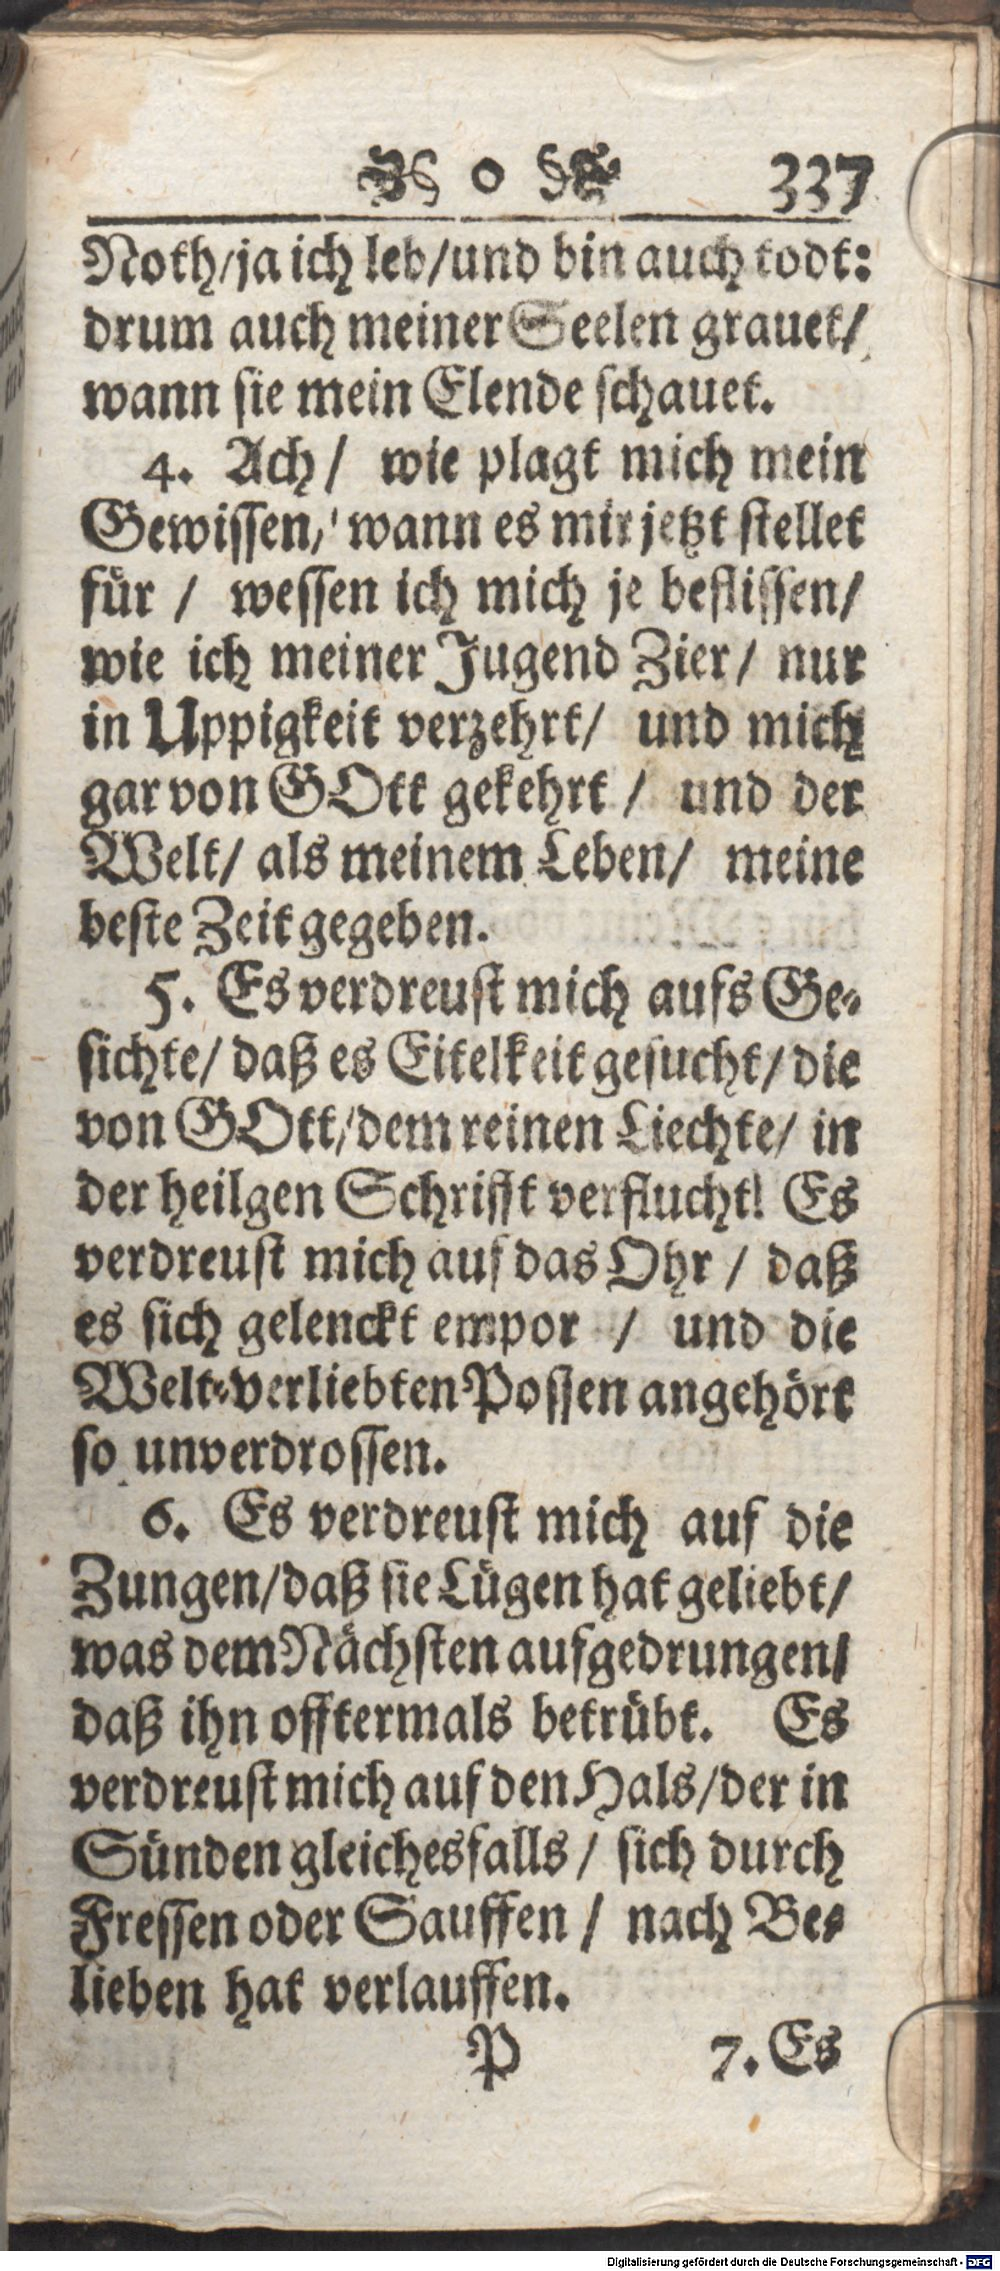 o 337
Noth/ja ich leb/und bin auch todt:
drum auch meiner Seelen grauet/
wann sie mein Elende schauet.
4. Ach/ wie plagt mich mein
Gewissen/ wann es mir jetzt stellet
für / wessen ich mich je beflissen/
wie ich meiner Jugend Zier/ nur
in Uppigkeit verzehrt/ und mich
gar von GOtt gekehrt / und der
Welt/ als meinem Leben/ meine
beste Zeit gegeben.
5. Es verdreust mich aufs Ge-
sichte/ daß es Eitelkeit gesucht/ die
von GOtt/dem reinen Liechte/ in
der heilgen Schrifft verflucht! Es
verdreust mich auf das Ohr / daß
es sich gelenckt empor / und die
Welt-verliebten Possen angehört
so unverdrossen.
6. Es verdreust mich auf die
Zungen/daß sie Lügen hat geliebt/
was dem Nächsten aufgedrungen/
daß ihn offtermals betrübt. Es
verdreust mich auf den Hals/der in
Sünden gleichesfalls/ sich durch
Fressen oder Sauffen / nach Be-
lieben hat verlauffen.
P 7. Es
Digitalisierung gefördert durch die Deutsche Forschungsgemeinschaft - DFG